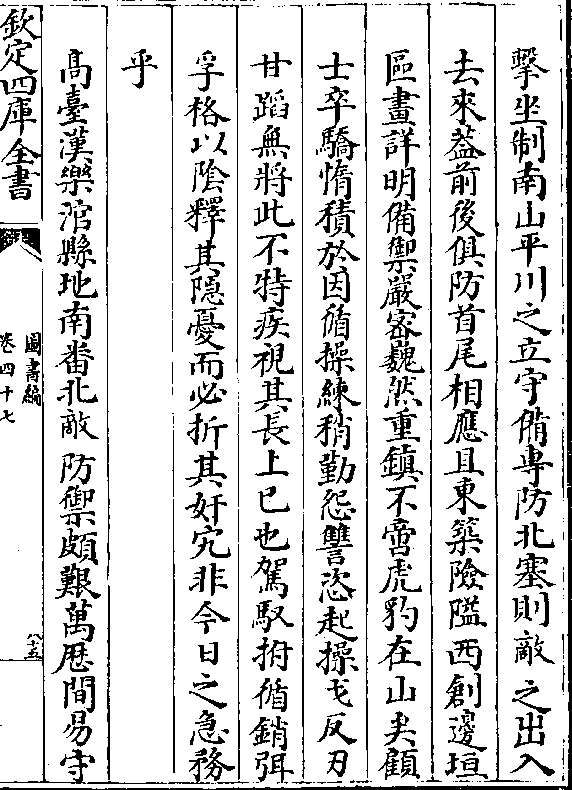 擊坐制南山平川之立守備専防北塞則敵之出入
去來葢前後俱防首尾相應且東築險隘西創邊垣
區畫詳明備禦嚴密巍然重鎮不啻虎豹在山矣顧
士卒驕惰積於因循操練稍勤怨讐恣起操戈反刃
甘蹈無將此不特疾視其長上已也駕馭拊循銷弭
孚格以陰釋其隱憂而必折其奸宄非今日之急務
乎
髙臺漢樂涫縣地南番北敵防禦頗艱萬厯間易守
欽定四庫全書
圖書編
卷四十七
八十五